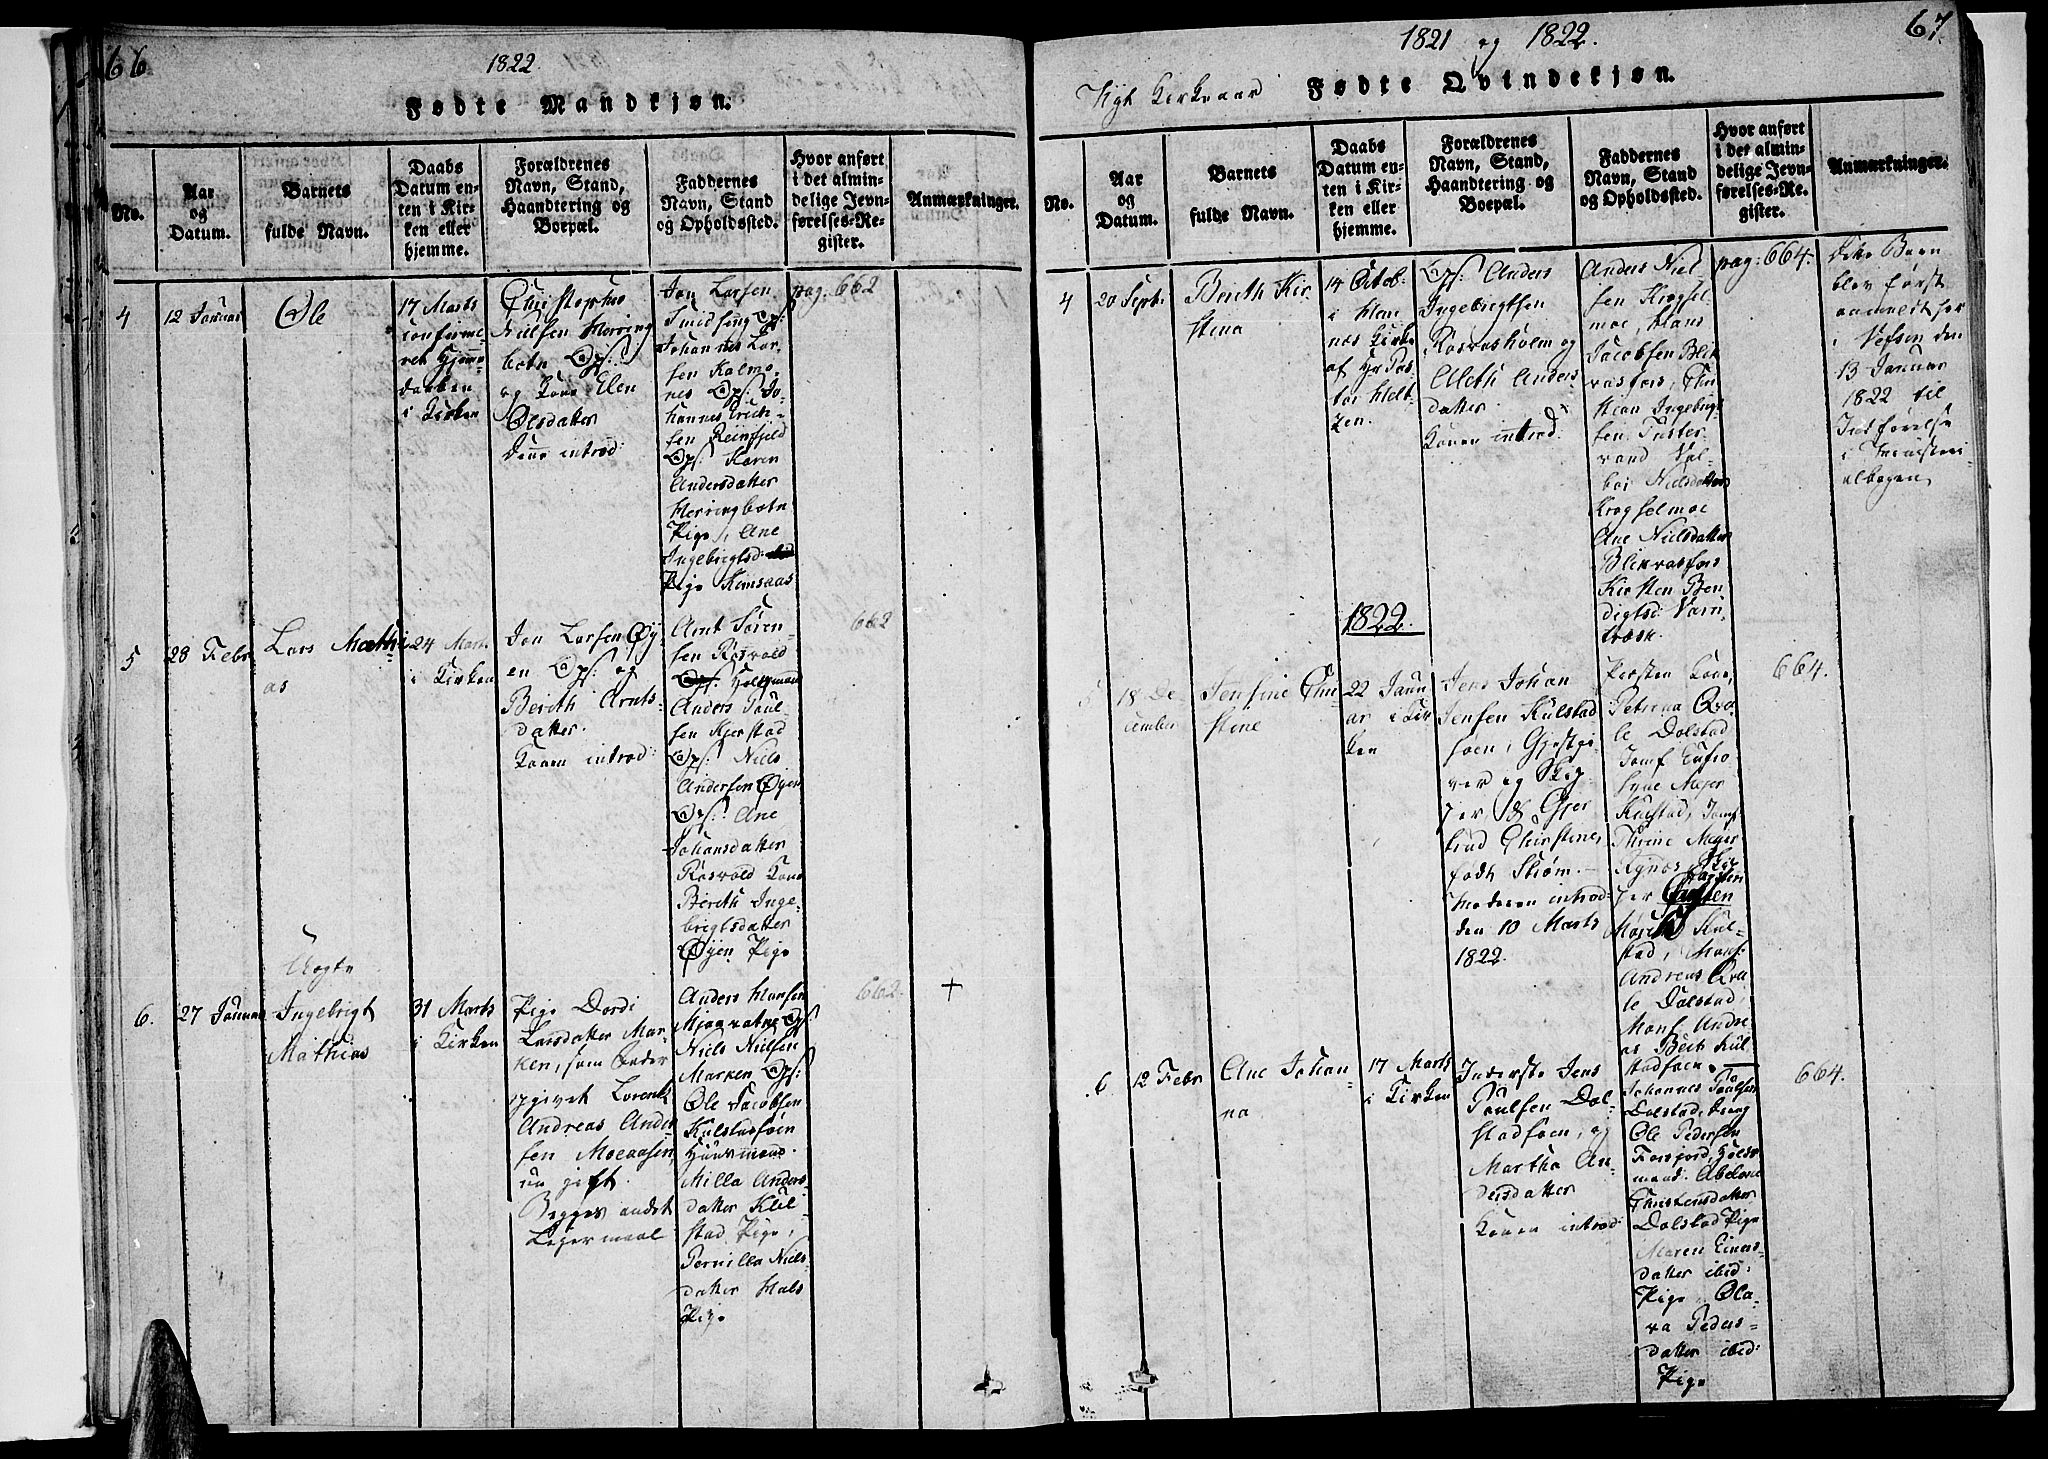 66
1822
Fødte Mandkjøn.
No.
Aar
og
Datum.
Barnets
fulde Navn.
Daabs
Datum en-
ten i Kir-
ken eller
hjemme.
Forældrenes
Navn, Stand,
Haandtering og
Boepæl.
Faddernes
Navn, Stand
og Opholdssted.
Hvor anført
i det almin-
delige Jevn-
førelses-Re-
gister.
Anmærkninger.
4
12 Januar
Ole
17 Marts
confirme-
ret Hjemme
daaben
i Kirken
Christopher
Nielsen Herring
botn Ops:
og Kone Elen
Olsdatter
Denne introd:
Jon Larsen
Smidseng Ops:
Johannes Lar-
sen Kalmo-
nes Ops: Jo-
hannes Erich-
sen Reinfjeld
Ops: Karen
Andersdatter
Herringbotn
Pige, Ane
Ingebrigtsd:
Pige Remsaas
pag. 662
5
28 Febr
Lars Mathi-
as
24 Marts
i Kirken
Jon Larsen Øy-
en Ops: og
Berith Arnts-
datter.
Konen introd:
Arnt Søren-
sen Rosvold
Anders Poul-
sen Kjerstad
Ops: Niels
Andersen Øyen
Ops: Ane
Johansdatter
Rosvold Kone
Berith Inge-
brigtsdatter
Øyen Pige
662
6.
27 Januar
Uægte
Ingebrigt
Mathias
31 Marts
i Kirken
Pige Dordi
Larsdatter Mar-
ken, som
Lorentz
Andreas Ander-
sen Moeaasen,
nu gift.
Begges andet
Leiermaal
Anders Hansen
Mjaavatne Ops:
Niels Nielsen
Marken Ops:
Ole Jacobsen
Kulstadsøen
Huusmand.
Milla Anders-
datter Kul-
stad Pige,
Pernilla Niels-
datter Hals
Pige
662.
+
67.
1821 og 1822.
Fødte Qvindekjøn.
No.
Aar
og
Datum.
Barnets
fulde Navn.
Daabs
Datum en-
ten i Kir-
ken eller
hjemme.
Forældrenes
Navn, Stand,
Haandtering og
Boepæl.
Faddernes
Navn, Stand
og Opholdssted.
Hvor anført
i det almin-
delige Jevn-
førelses-Re-
gister.
Anmærkninger.
4
20 Septbr
Berith Kir-
stina
14 Octob:
i Hem-
nes Kirke
af Hr Pas-
tor Helt-
zen.
Ops: Anders
Ingebrigtsen
Røsvasholm og
Aleth Anders-
datter.
Konen introd:
Anders Niel-
sen Krogsel-
moe, Hans
Jacobsen Blik-
vasfors, Chri-
stian Ingebrigt-
sen Tuster-
vand Vol-
bor Nielsdatter
Krogselmoe
Ane Nielsdatter
Blikvasfors
Kirsten Ben-
digtsd: Varn-
træsk.
pag: 664.
Dette Barn
blev først
anmeldt her
i Vefsen den
13 Januar
1822 til
Indførelse
i Ministeri-
albogen
1822.
5
18 De-
cember
Jensine Chri-
stine
22 Janu-
ar i Kir-
ken
Jens Johan
Jensen Kulstad
søen, Gjestgi-
ver og Skip-
per & Gjer-
trud Christine,
født Strøm.
Moderen introd:
den 10 Marts
1822.
Petrina Qva-
le Dolstad
Jomf Eufro-
syne Mejer
Kulstad, Jomf
Thrine Mejer
Kul-
stad, Mons:
Andreas Qva-
le Dolstad,
Mons: Andre-
as Bech Kul-
stadsøen.
664.
6
12 Febr
Ane Johan-
na
17 Marts
i Kirken
Inderste Jens
Poulsen Dol-
stadsøen, og
Martha An-
dersdatter
Konen introd:
Johannes Poulsen
Dolstad,
Ole Pedersen
Forsjord, Huus-
mand. Abelone
Christensdatter
Dolstad Pige
Maren Einers-
datter ibid:
Pige, Ola-
va Peders-
datter ibid:
Pige
664.